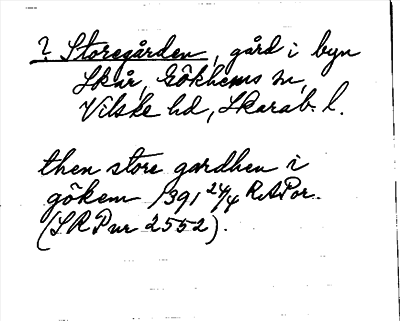 ? Storegården, gård i byn
Skår, Gökhems sn,
Vilske hd, Skarab. l.
then store gardhen i
gökem 1391 24/4 RAPor.
(SRPur 2552).